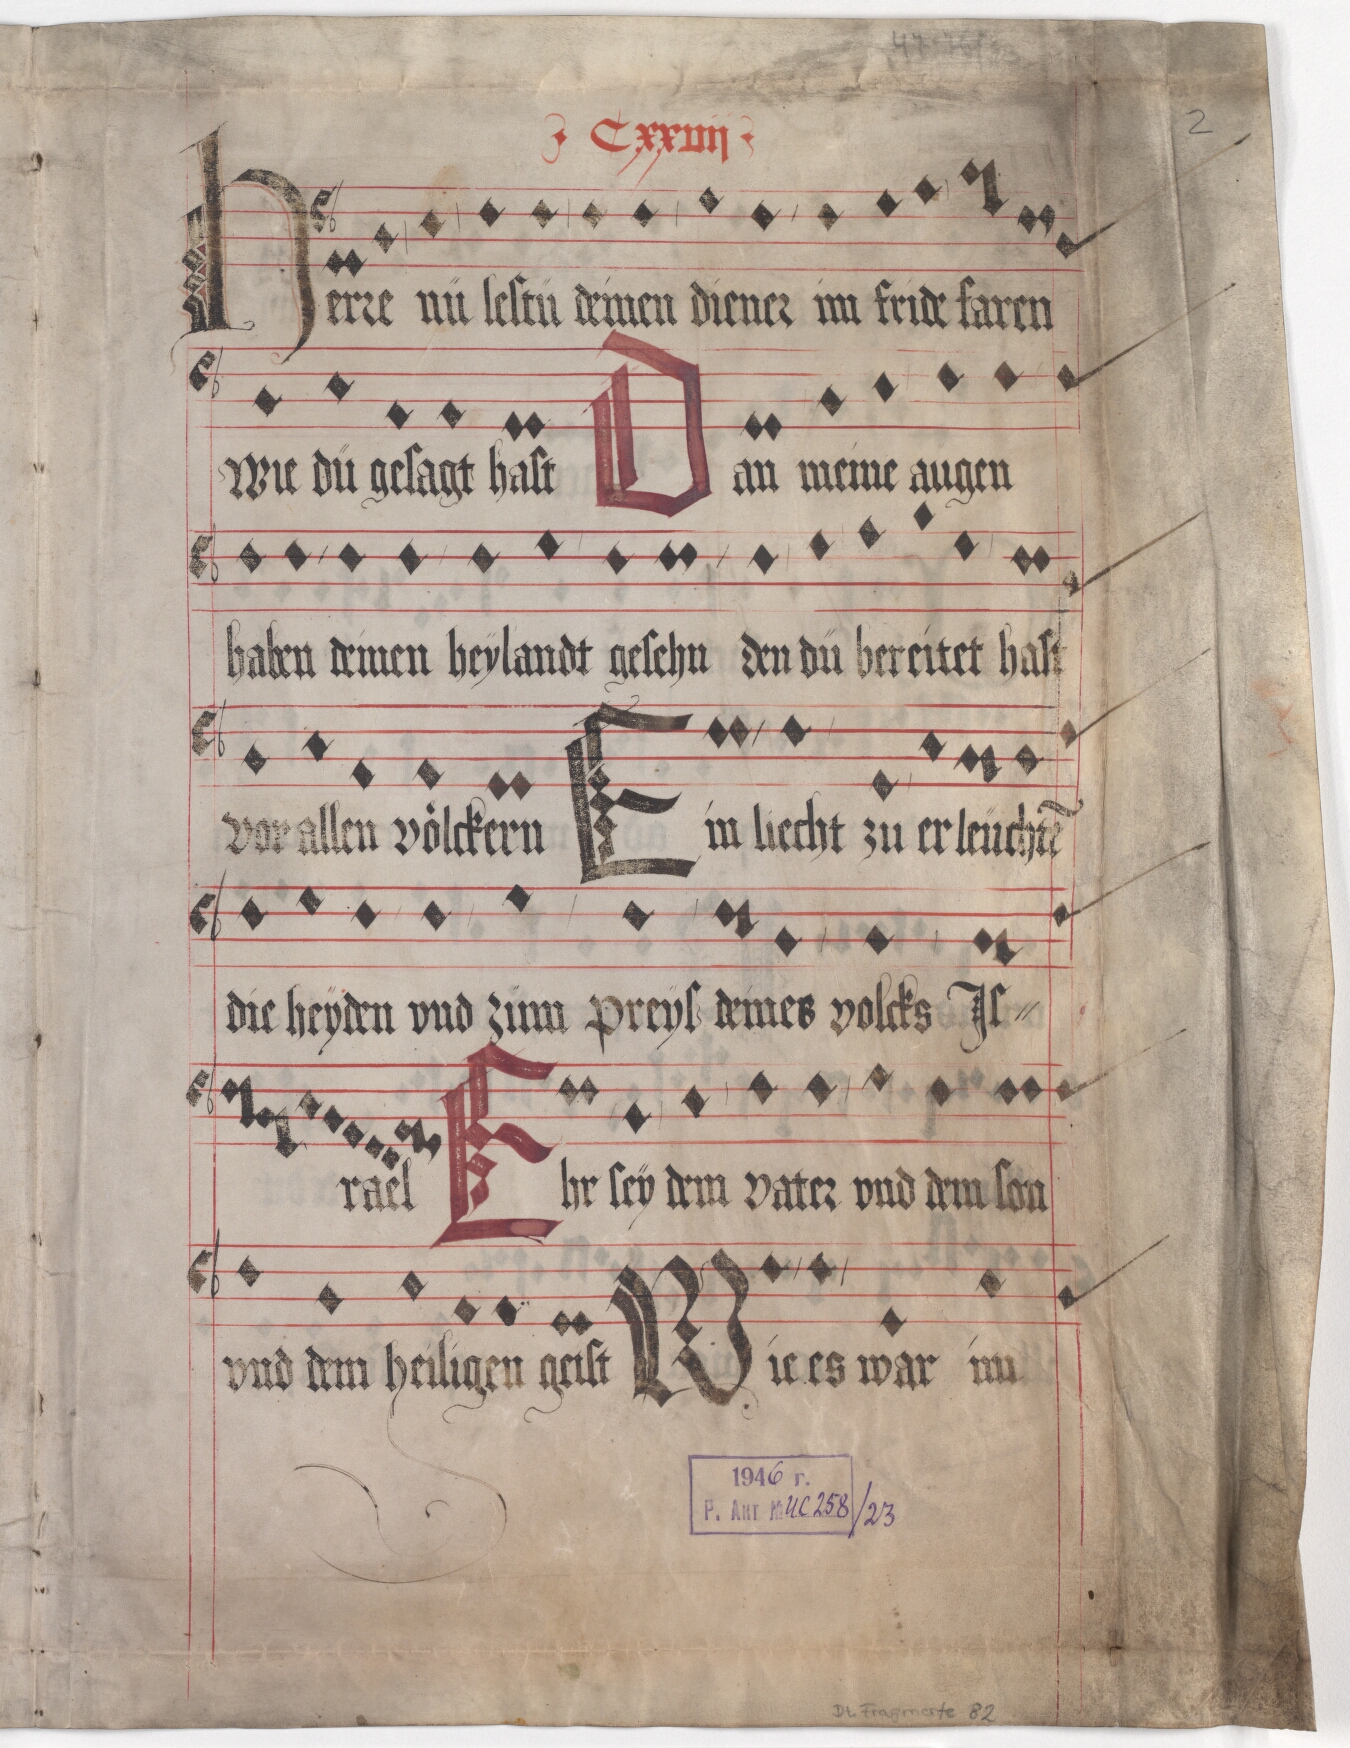 2
· Cxxiiij ·
Herre nü lestü deinen diener im fride faren
Wie dü gesagt hast Dan meine augen
haben deinen heÿlandt gesehn den dü bereitet hast
vor allen völckern Ein liecht zu erleüchtē
die heÿden vnd züm preÿs deines volcks Is⸗
rael Ehr seÿ dem vater vnd dem son
vnd dem heiligen geist Wie es war im
1946 г.
Р. Акт № ИС 258/23
Dt. Fragmente 82